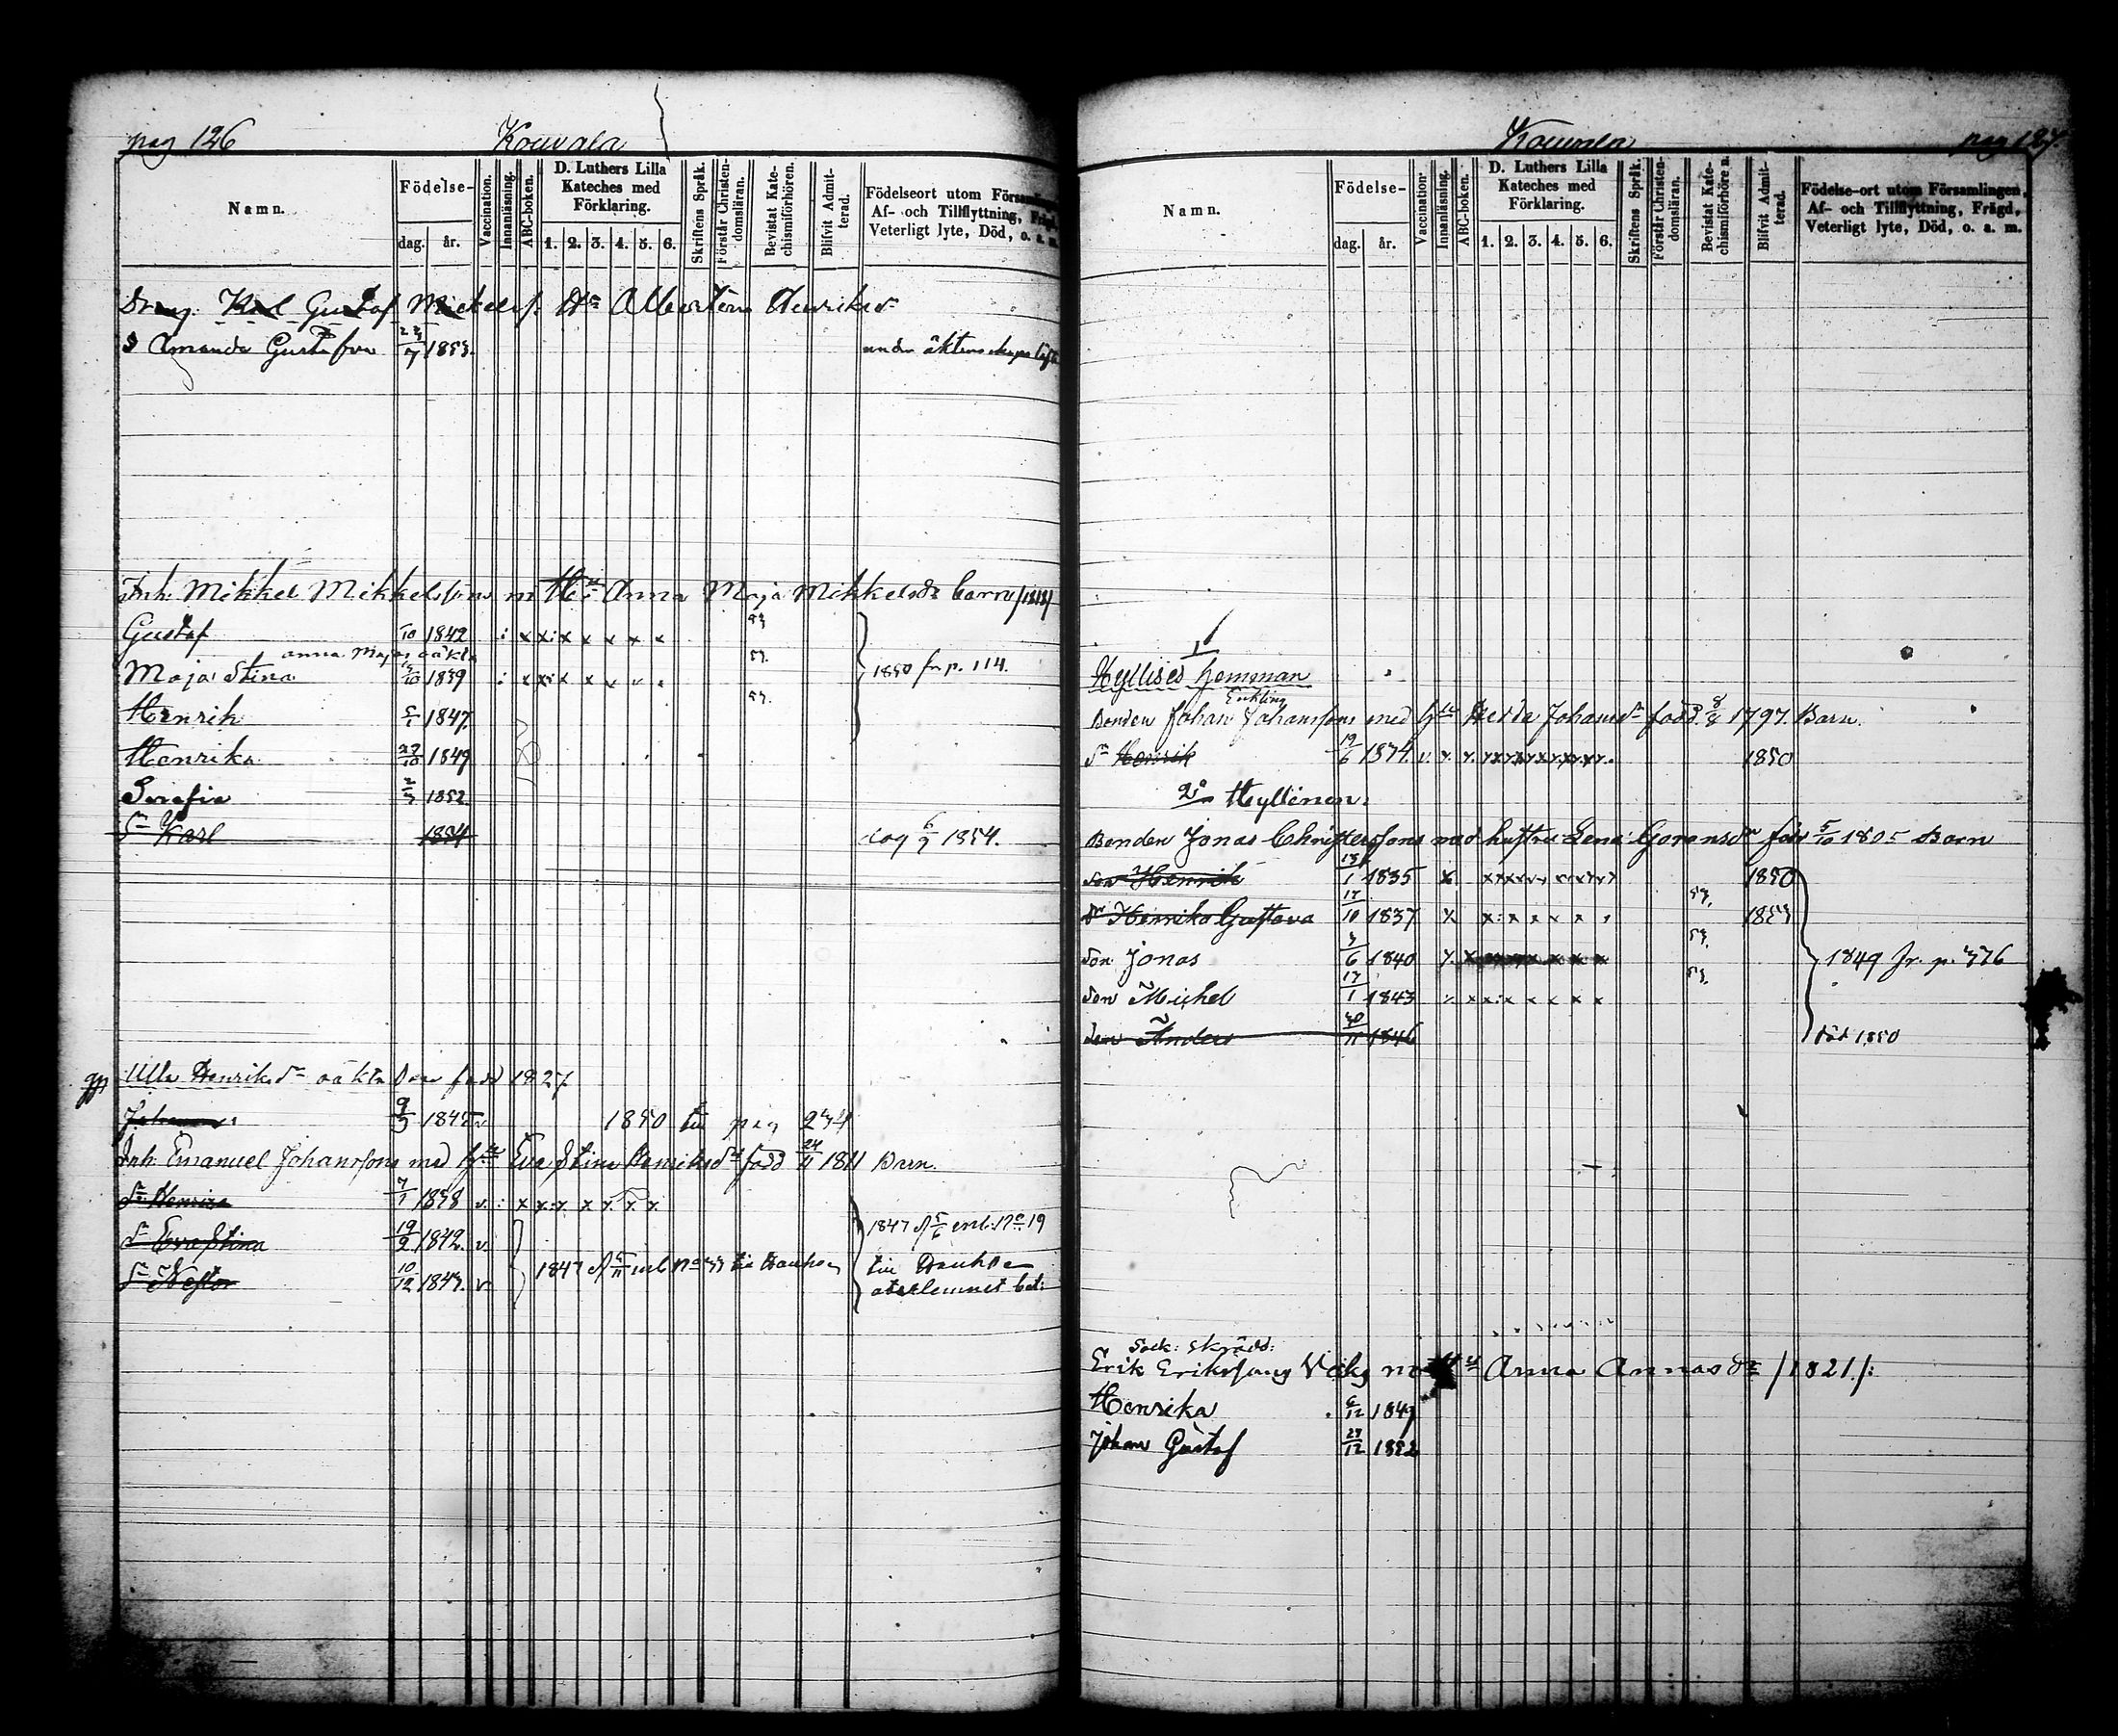 pag 126 Kouvala
Namn. Födelse- dag. år. Vaccination. Innanläsning. ABC-boken. D. Luthers Lilla Kateches med Förklaring. 1. 2. 3. 4. 5. 6. Skriftens Språk. Förstår Christendomsläran. Bevistat Katechismiförhören. Blifvit Admitterad. Födelseort utom Församlingen, Af- och Tillflyttning, Frägd, Veterligt lyte, Död, o. a. m.
Dreng. Karl Gustaf Mickelss. Hu Albertina Henriksd
D Amanda Gustafva 23/7 1853. under äktenskaps löfte
Inh. Mikkel Mikkelssons m Hu Anna Maja Mikkelsdr barn /1818/
Gustaf /10 1842 : x x:x x x x x 53
anna Majas oäkta
Maja Stina /10 1839 : x x:x x x v . 53. 1850 fr p. 114.
Henrik 5/1 1847. 53.
Henrika 27/10 1849
Serafia 2/3 1852
Sn Karl 1854 dog 6/7 1854.
Ulla Henriksdr oäkta Son född 1827
Johan 9/3 1845 v 1850 till pag 234
Inh Emanuel Johanssons med Hu Eva Stina Henriksdr född 24/11 1811 Barn.
7/1 1838 v. : x x:x x x x x
Dr Eva Stina 19/2 1842. v.
Sn Nestor 10/12 1843. v
1847 d 5/11 enl No 33 till Hauho
1847 d 5/6 enl. No 19
till Hauho
återlemnat bet:
Kouvala pag 127.
Namn. Födelse- dag. år. Vaccination Innanläsning. ABC-boken. D. Luthers Lilla Kateches med Förklaring. 1. 2. 3. 4. 5. 6. Skriftens Språk. Förstår Christendomsläran. Bevistat Katechismiförhören. Blifvit Admitterad. Födelse-ort utom Församlingen, Af- och Tillflyttning, Frägd, Veterligt lyte, Död, o. a. m.
1
Hyllises hemman
Enkling
Bonden Johan Johanssons med Hu Hedda Johansdr född. 8/8 1797. Barn.
Sn Henrik 19/6 1834. 1850
2o Hyllinen.
Bonden Jonas Christerssons med hustru Lena Goransdr född 5/10 1805 Barn
Son Henrik 13/1 1835 x 1850
Dr Henrika Gustava 17/10 1837 x x:x x x x 53. 1853
Son Jonas 3/6 1840 53. 1849 fr. p. 376
Son Michel 17/1 1843 x x:x x x x x 53.
Son Anders 30/11 1846 död 1850
Sock: skrädd:
Erik Erikssons Veikz m Hu Anna Annasdr /1821/:
Henrika 6/12 1849
Johan Gustaf 23/12 1852